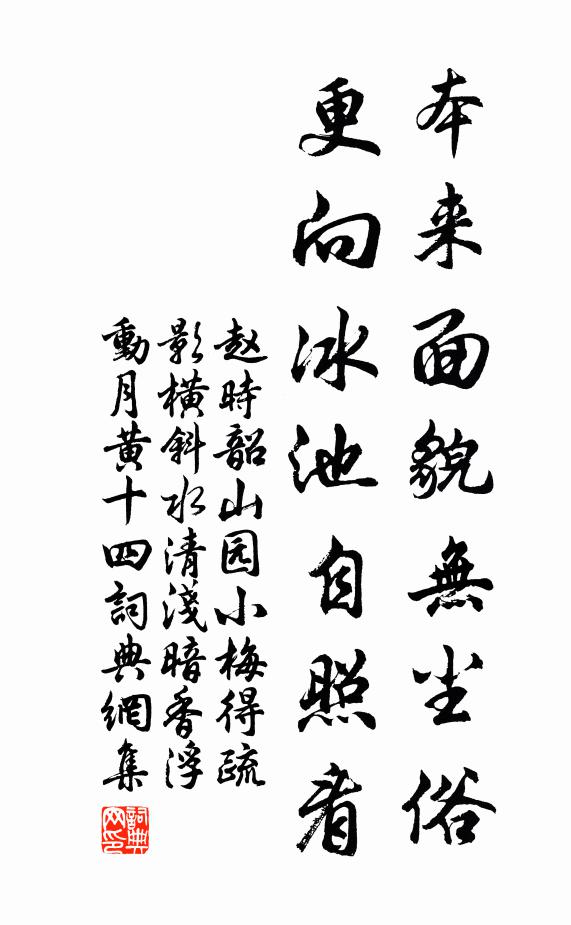 本来面貌無尘俗
更向冰池自照看
赵時韶山园小梅得疏
影橫斜水清淺暗香浮
動月黃十四詞典網集
詞典网印